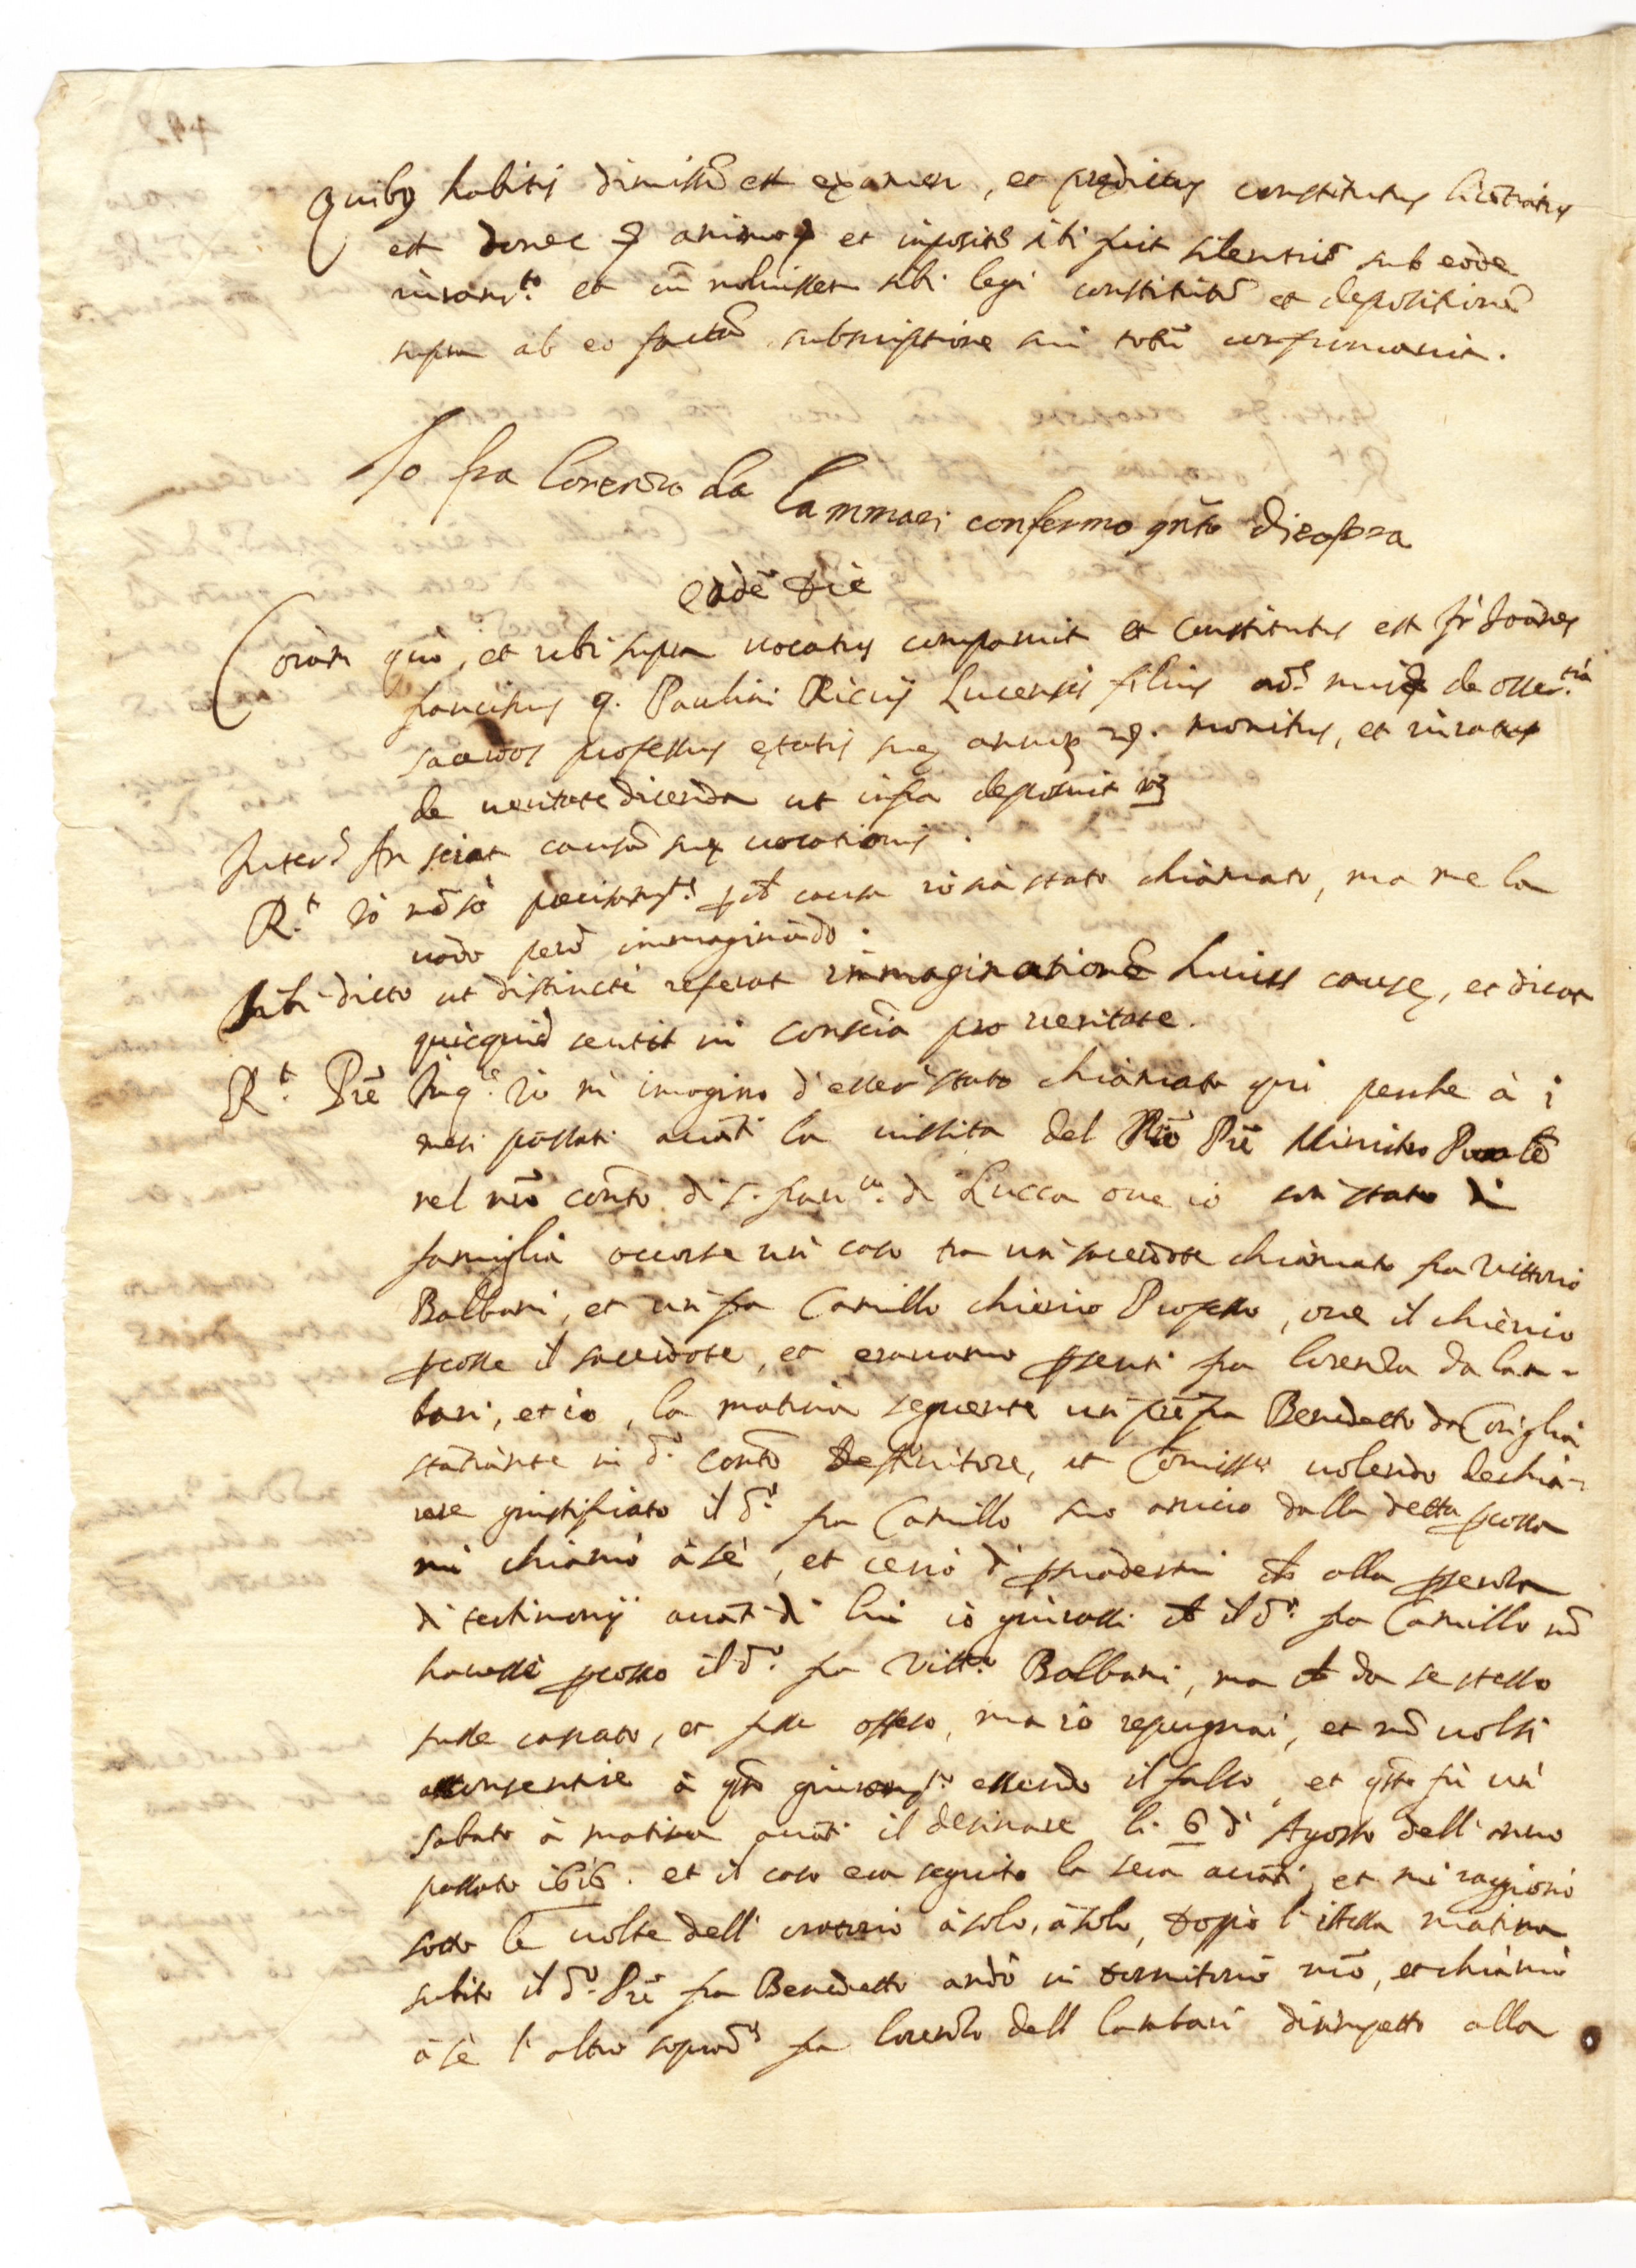 Quibq habitis dimissũ est examen, et prędictus constitutus licẽtiatus
est donec et ĩpositũ sibi fuit silentiũ sub eodẽ
iuramto. et cũ noluisset sibi legi constitutũ et depositionẽ
supra ab eo factã subscriptione sui totũ confirmauit.
Io fra Lorenzo da Lammari confermo qũto di sopra
eadẽ die
Corã quo, et ubi supra uocatus comparuit et constitutus est fr Ioãnes
franciscus q. Paulini Riccij Lucensis filius ord.s mins de osser.tia
sacerdos professus ętatis suę annoʒ 29. monitus, et iuratus
de ueritate dicenda ut infra deposuit vʒ
Inter.s An sciat causã suę uocationis.
R.t Io nõ sò precisam.te p che causa io sia stato chiamato, ma me la
uado però immaginãdo.
Sibi dicto ut distincte referat immaginationẽ huius causę, et dicat
quicquid sentit in consciã pro ueritate.
R.t Prẽ Inq.re Io mi imagino d'esser stato chiamato qui perche à i
mesi passati auãti la uissita del Rṽo Prẽ Ministro Prouãle
nel nrõ conto di s. franco. di Lucca oue io son stato di
famiglia occorse un caso tra un sacerdote chiamato fra Vittorio
Balbani, et un fra Camillo chierico Professo, oue il chierico
pcosse il sacerdote, et erauamo psenti fra Lorenzo da Lam-
bari, et io, la matina seguente un prẽ fra Benedetto da Coriglia
statiante in d.o conto Definitore, et Comiss.o uolendo dechia-
rare giustificato il d.o fra Camillo suo amico dalla detta pcossa
mi chiamò à sè, et cercò di psuadermi che alla psenza
di testimonij auãti di lui io giurassi che il d.o fra Camillo nõ
hauesse pcosso il d.o fra Vitt.o Balbani, ma che da se stesso
fusse cascato, et fusse offeso, ma io repugnai, et nõ uolsi
acconsentire à qsto giuram.to essendo il falso, et qsto fù un
sabato à matina auãti il desinare li 6 di Agosto dell'anno
passato 1616. et il caso era seguito la sera auãti, et mi ragionò
sotto le uolte dell' oratorio à solo, à solo, doppò l'istessa matina
subito il d.o Prẽ fra Benedetto andò in dormitorio nrõ, et chiamò
à sè l'altro soprad.o fra Lorenzo dell Lambari dirimpetto alla